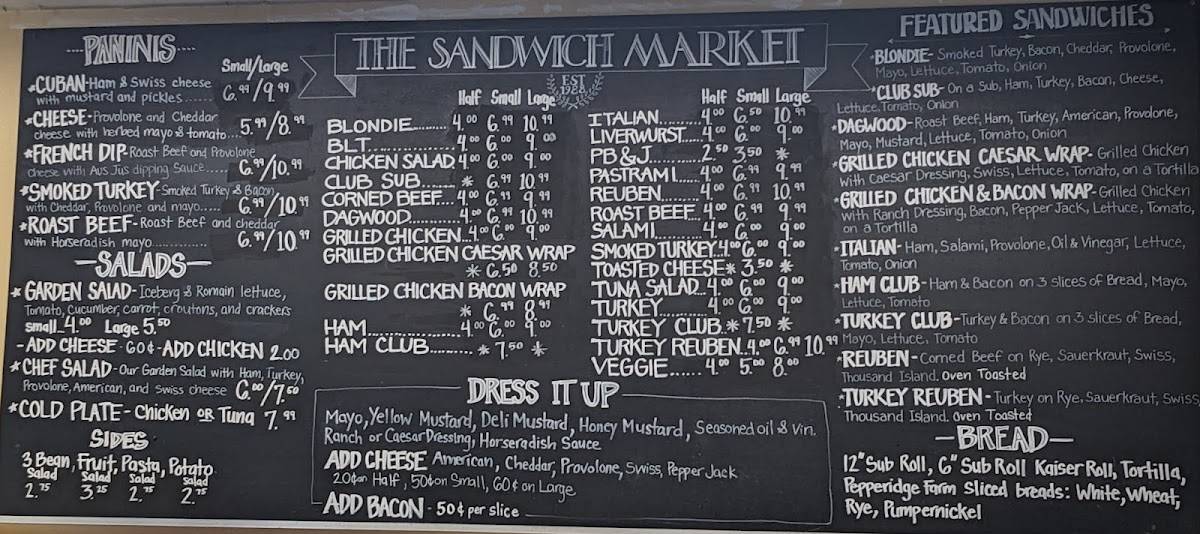 PANINIS
Small/Large
*CUBAN-Ham & Swiss cheese
with mustard and pickles..... 6.99/9.99
*CHEESE-Provolone and Cheddar
cheese with herbed mayo & tomato... 5.99/8.99
*FRENCH DIP-Roast Beef and Provolone
cheese with Aus Jus dipping Sauce...... 6.99/10.99
*SMOKED TURKEY-Smoked Turkey & Bacon
with Cheddar, Provolone and mayo..... 6.99/10.99
*ROAST BEEF-Roast Beef and cheddar
with Horseradish mayo............. 6.99/10.99
-SALADS-
*GARDEN SALAD-Iceberg & Romain lettuce,
Tomato, Cucumber, carrot, croutons, and crackers
small 4.00 Large 5.50
-ADD CHEESE-60¢-ADD CHICKEN 2.00
*CHEF SALAD-Our Garden Salad with Ham, Turkey,
Provolone, American, and Swiss cheese 6.00/7.50
*COLD PLATE-Chicken OR Tuna 7.99
SIDES
3 Bean, Fruit, Pasta, Potato
Salad Salad Salad Salad
2.75 3.25 2.75 2.75
THE SANDWICH MARKET
EST
1988
Half Small Large
BLONDIE.......... 4.00 6.99 10.99
BLT................ 4.00 6.00 9.00
CHICKEN SALAD 4.00 6.00 9.00
CLUB SUB........ * 6.99 10.99
CORNED BEEF... 4.00 6.99 9.99
DAGWOOD......... 4.00 6.99 10.99
GRILLED CHICKEN..4.00 6.00 9.00
GRILLED CHICKEN CAESAR WRAP
* 6.50 8.50
GRILLED CHICKEN BACON WRAP
* 6.99 8.99
HAM................ 4.00 6.00 9.00
HAM CLUB.......... * 7.50 *
Half Small Large
ITALIAN......... 4.00 6.50 10.99
LIVERWURST...4.00 6.00 9.00
PB & J........... 2.50 3.50 *
PASTRAMI..... 4.00 6.99 9.99
REUBEN......... 4.00 6.99 10.99
ROAST BEEF.. 4.00 6.99 9.99
SALAMI.......... 4.00 6.00 9.00
SMOKED TURKEY.4.00 6.00 9.00
TOASTED CHEESE * 3.50 *
TUNA SALAD.. 4.00 6.00 9.00
TURKEY.......... 4.00 6.00 9.00
TURKEY CLUB..* 7.50 *
TURKEY REUBEN..4.00 6.99 10.99
VEGGIE...... 4.00 5.00 8.00
DRESS IT UP
Mayo, Yellow Mustard, Deli Mustard, Honey Mustard, Seasoned oil & Vin.
Ranch or Caesar Dressing, Horseradish Sauce
ADD CHEESE American, Cheddar, Provolone, Swiss, Pepper Jack
20¢on Half, 50¢on Small, 60¢ on Large
ADD BACON - 50¢ per slice
FEATURED SANDWICHES
*BLONDIE- Smoked Turkey, Bacon, Cheddar, Provolone,
Mayo, Lettuce, Tomato, Onion
*CLUB SUB- On a Sub, Ham, Turkey, Bacon, Cheese,
Lettuce, Tomato, Onion
*DAGWOOD- Roast Beef, Ham, Turkey, American, Provolone,
Mayo, Mustard, Lettuce, Tomato, Onion
*GRILLED CHICKEN CAESAR WRAP- Grilled Chicken
with Caesar Dressing, Swiss, Lettuce, Tomato, on a Tortilla
*GRILLED CHICKEN & BACON WRAP- Grilled Chicken
with Ranch Dressing, Bacon, Pepper Jack, Lettuce, Tomato,
on a Tortilla
*ITALIAN- Ham, Salami, Provolone, Oil & Vinegar, Lettuce,
Tomato, Onion
*HAM CLUB- Ham & Bacon on 3 slices of Bread, Mayo,
Lettuce, Tomato
*TURKEY CLUB-Turkey & Bacon on 3 slices of Bread,
Mayo, Lettuce, Tomato
*REUBEN- Corned Beef on Rye, Sauerkraut, Swiss,
Thousand Island. Oven Toasted
*TURKEY REUBEN- Turkey on Rye, Sauerkraut, Swiss,
Thousand Island. Oven Toasted
-BREAD-
12" Sub Roll, 6" Sub Roll Kaiser Roll, Tortilla,
Pepperidge Farm Sliced breads: White, Wheat,
Rye, Pumpernickel